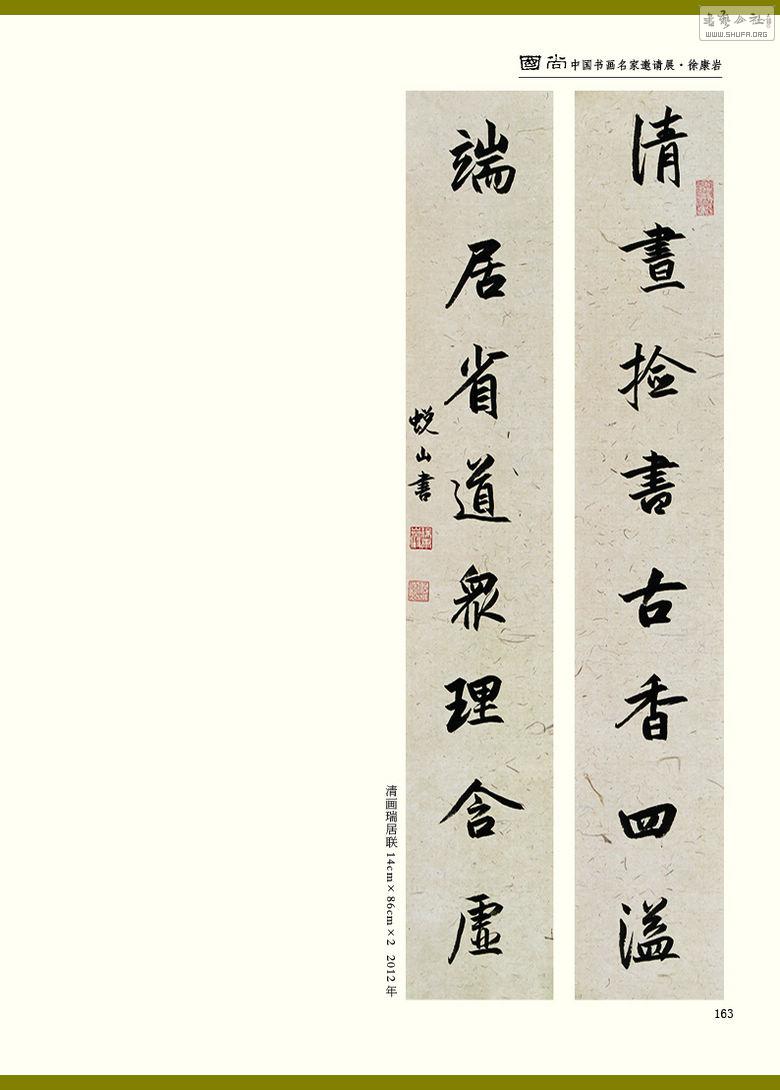 WWW.SHUFA.ORG
國尚 中国书画名家邀请展·徐康岩
清晝捡書古香四溢
端居省道眾理含虛
山書
清画瑞居联 14cm×86cm×2 2012年
163